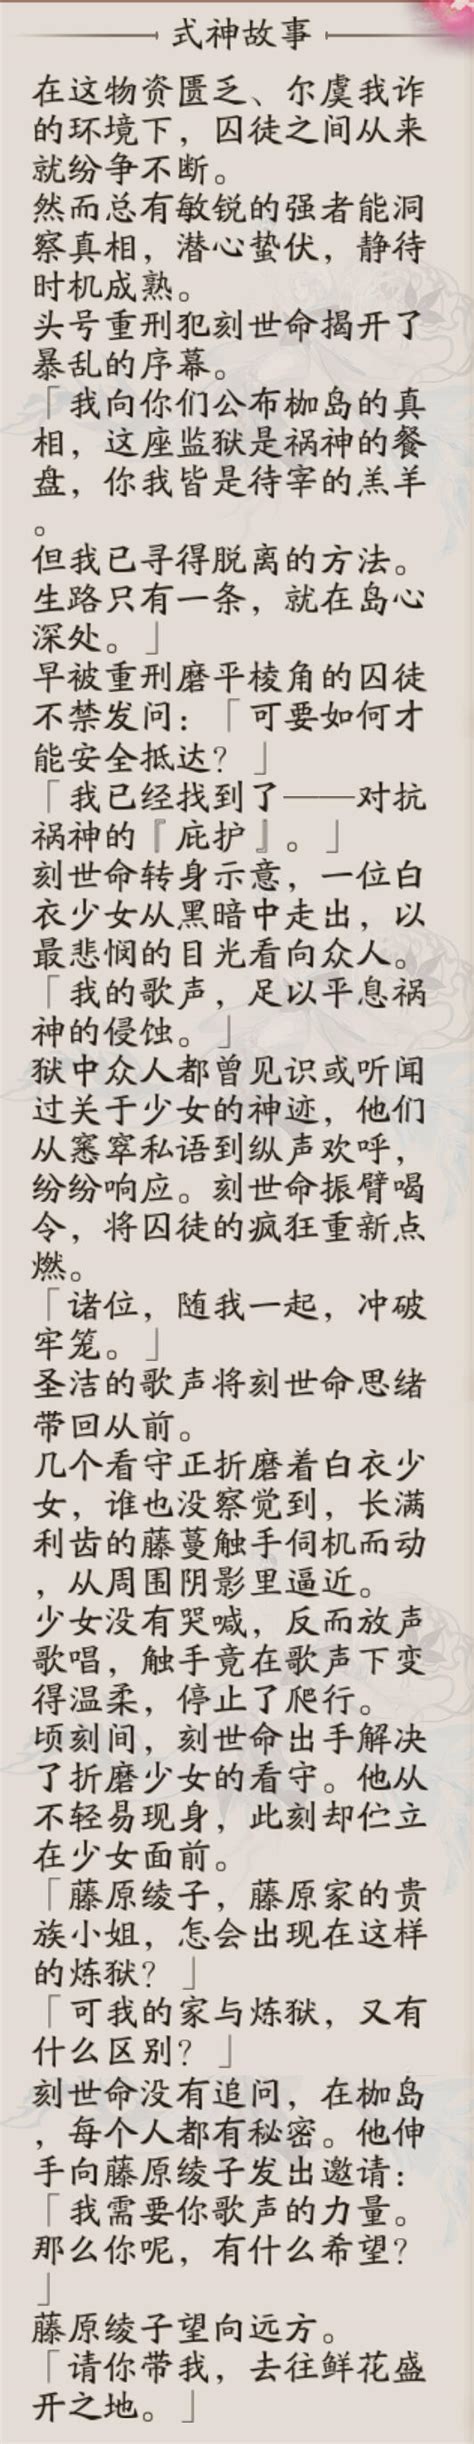 式神故事
在这物资匮乏、尔虞我诈
的环境下，囚徒之间从来
就纷争不断。
然而总有敏锐的强者能洞
察真相，潜心蛰伏，静待
时机成熟。
头号重刑犯刻世命揭开了
暴乱的序幕。
「我向你们公布枷岛的真
相，这座监狱是祸神的餐
盘，你我皆是待宰的羔羊
。
但我已寻得脱离的方法。
生路只有一条，就在岛心
深处。」
早被重刑磨平棱角的囚徒
不禁发问：「可要如何才
能安全抵达？」
「我已经找到了——对抗
祸神的『庇护』。」
刻世命转身示意，一位白
衣少女从黑暗中走出，以
最悲悯的目光看向众人。
「我的歌声，足以平息祸
神的侵蚀。」
狱中众人都曾见识或听闻
过关于少女的神迹，他们
从窸窣私语到纵声欢呼，
纷纷响应。刻世命振臂喝
令，将囚徒的疯狂重新点
燃。
「诸位，随我一起，冲破
牢笼。」
圣洁的歌声将刻世命思绪
带回从前。
几个看守正折磨着白衣少
女，谁也没察觉到，长满
利齿的藤蔓触手伺机而动
，从周围阴影里逼近。
少女没有哭喊，反而放声
歌唱，触手竟在歌声下变
得温柔，停止了爬行。
顷刻间，刻世命出手解决
了折磨少女的看守。他从
不轻易现身，此刻却伫立
在少女面前。
「藤原绫子，藤原家的贵
族小姐，怎会出现在这样
的炼狱？」
「可我的家与炼狱，又有
什么区别？」
刻世命没有追问，在枷岛
，每个人都有秘密。他伸
手向藤原绫子发出邀请：
「我需要你歌声的力量。
那么你呢，有什么希望？
」
藤原绫子望向远方。
「请你带我，去往鲜花盛
开之地。」